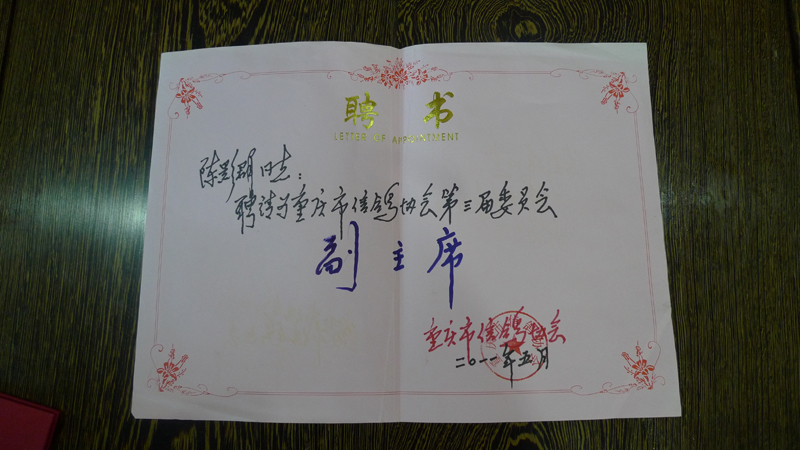 聘 书
LETTER OF APPOINTMENT
陈彭群同志：
聘请为重庆市信鸽协会第三届委员会
副主席
重庆市信鸽协会
二〇一一年五月